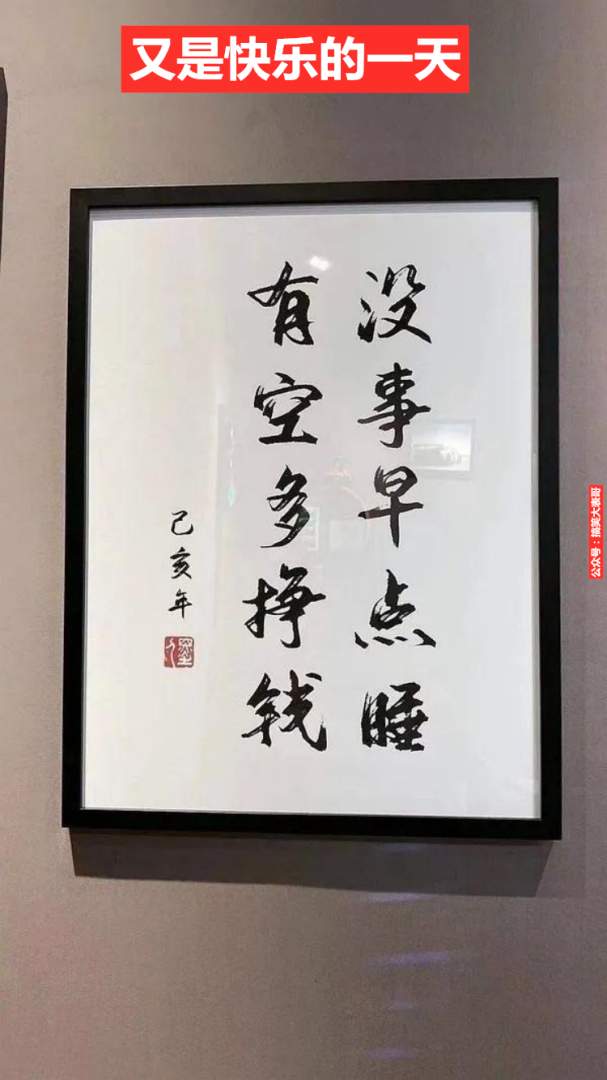 又是快乐的一天
没事早点睡
有空多挣钱
己亥年
公众号：搞笑大表哥